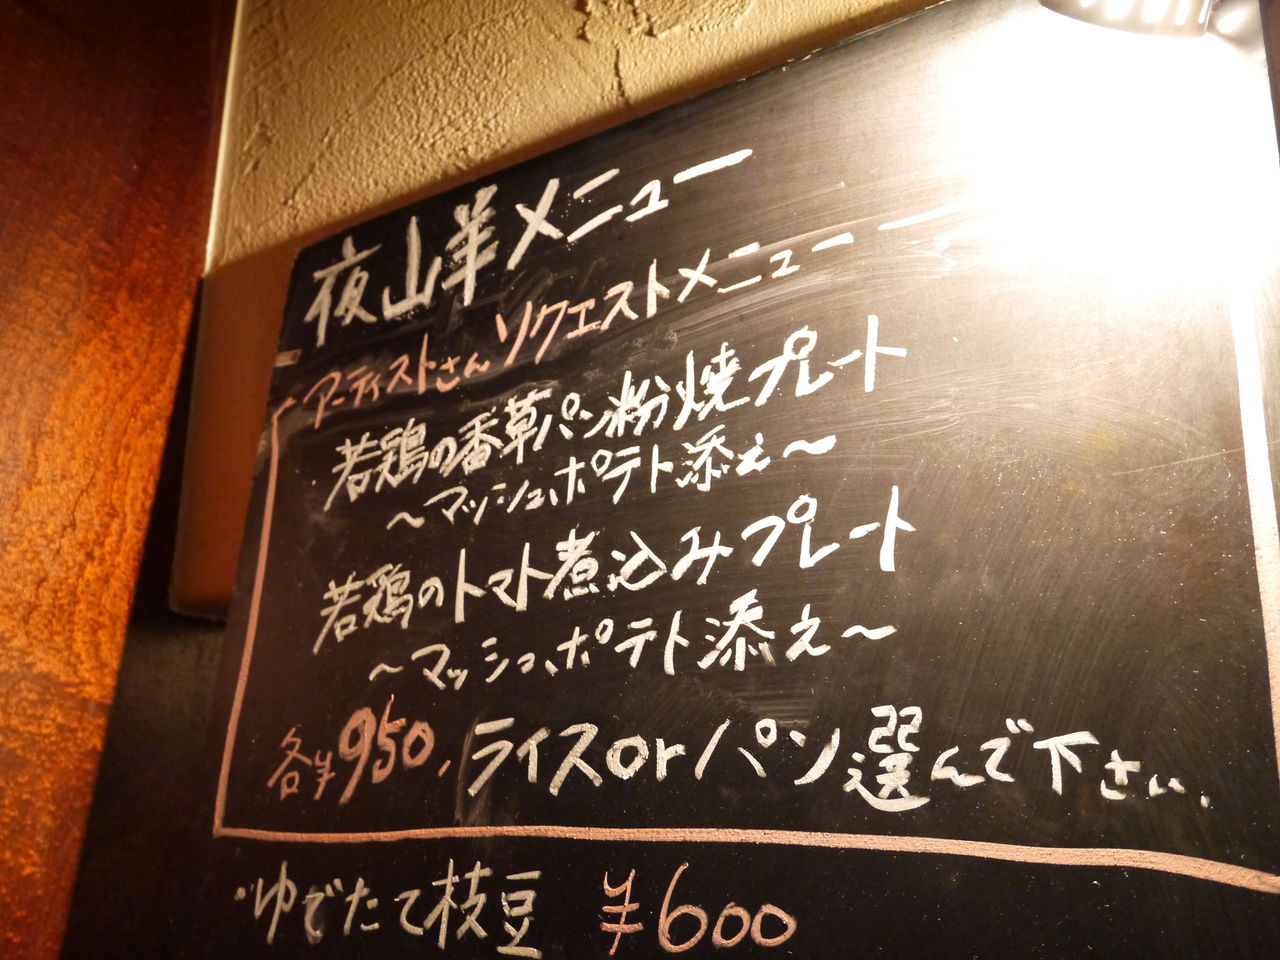 夜山羊メニュー
アーティストさんリクエストメニュー
若鶏の香草パン粉焼プレート
～マッシュポテト添え～
若鶏のトマト煮込みプレート
～マッシュポテト添え～
各¥950, ライスorパン選んで下さい、
・ゆでたて枝豆 ¥600